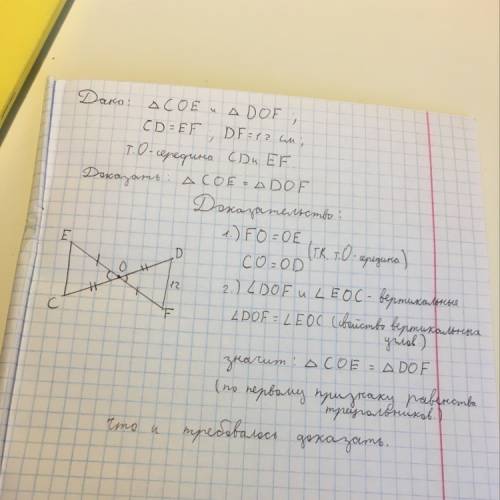 Дано: △COE и △DOF,
CD=EF, DF=12 см,
т.O-середина CD и EF
Доказать: △COE=△DOF
Доказательство:
1.) FO=OE
CO=OD (т.к. т.O-середина)
2.) ∠DOF и ∠EOC-вертикальные
∠DOF=∠EOC (свойство вертикальных
углов)
значит: △COE=△DOF
(по первому признаку равенства
треугольников)
Что и требовалось доказать.
E
D
O
12
C
F